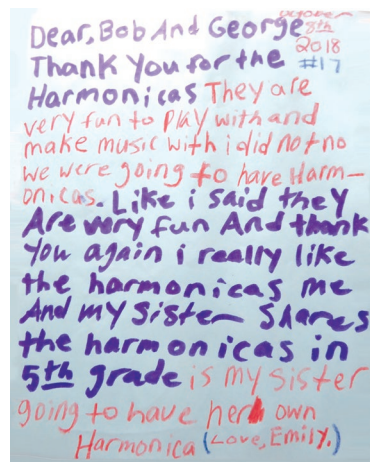 october
Dear, Bob And George 8th
2018
Thank You for the #17
Harmonicas They are
very fun to Play with and
make music with i did not no
we were going to have Harm-
onicas. Like i said they
Are very fun And thank
you again i really like
the harmonicas me
And my sister Shares
the harmonicas in
5th grade is my sister
going to have her own
Harmonica (Love, Emily.)